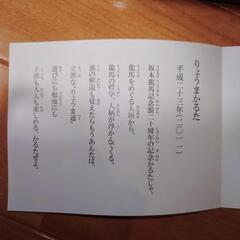 りょうまかるた
平成二十三年(二〇一一)
坂本龍馬記念館二十周年の記念かるたじゃ。
龍馬をめぐる人垣から、
龍馬の哲学、人柄が浮かんでくる。
裏の解説も覚えたらもうあんたは、
立派な〝りょうま通〟
遊びにも勉強にも
子供も大人も楽しめる、かるたぜよ。